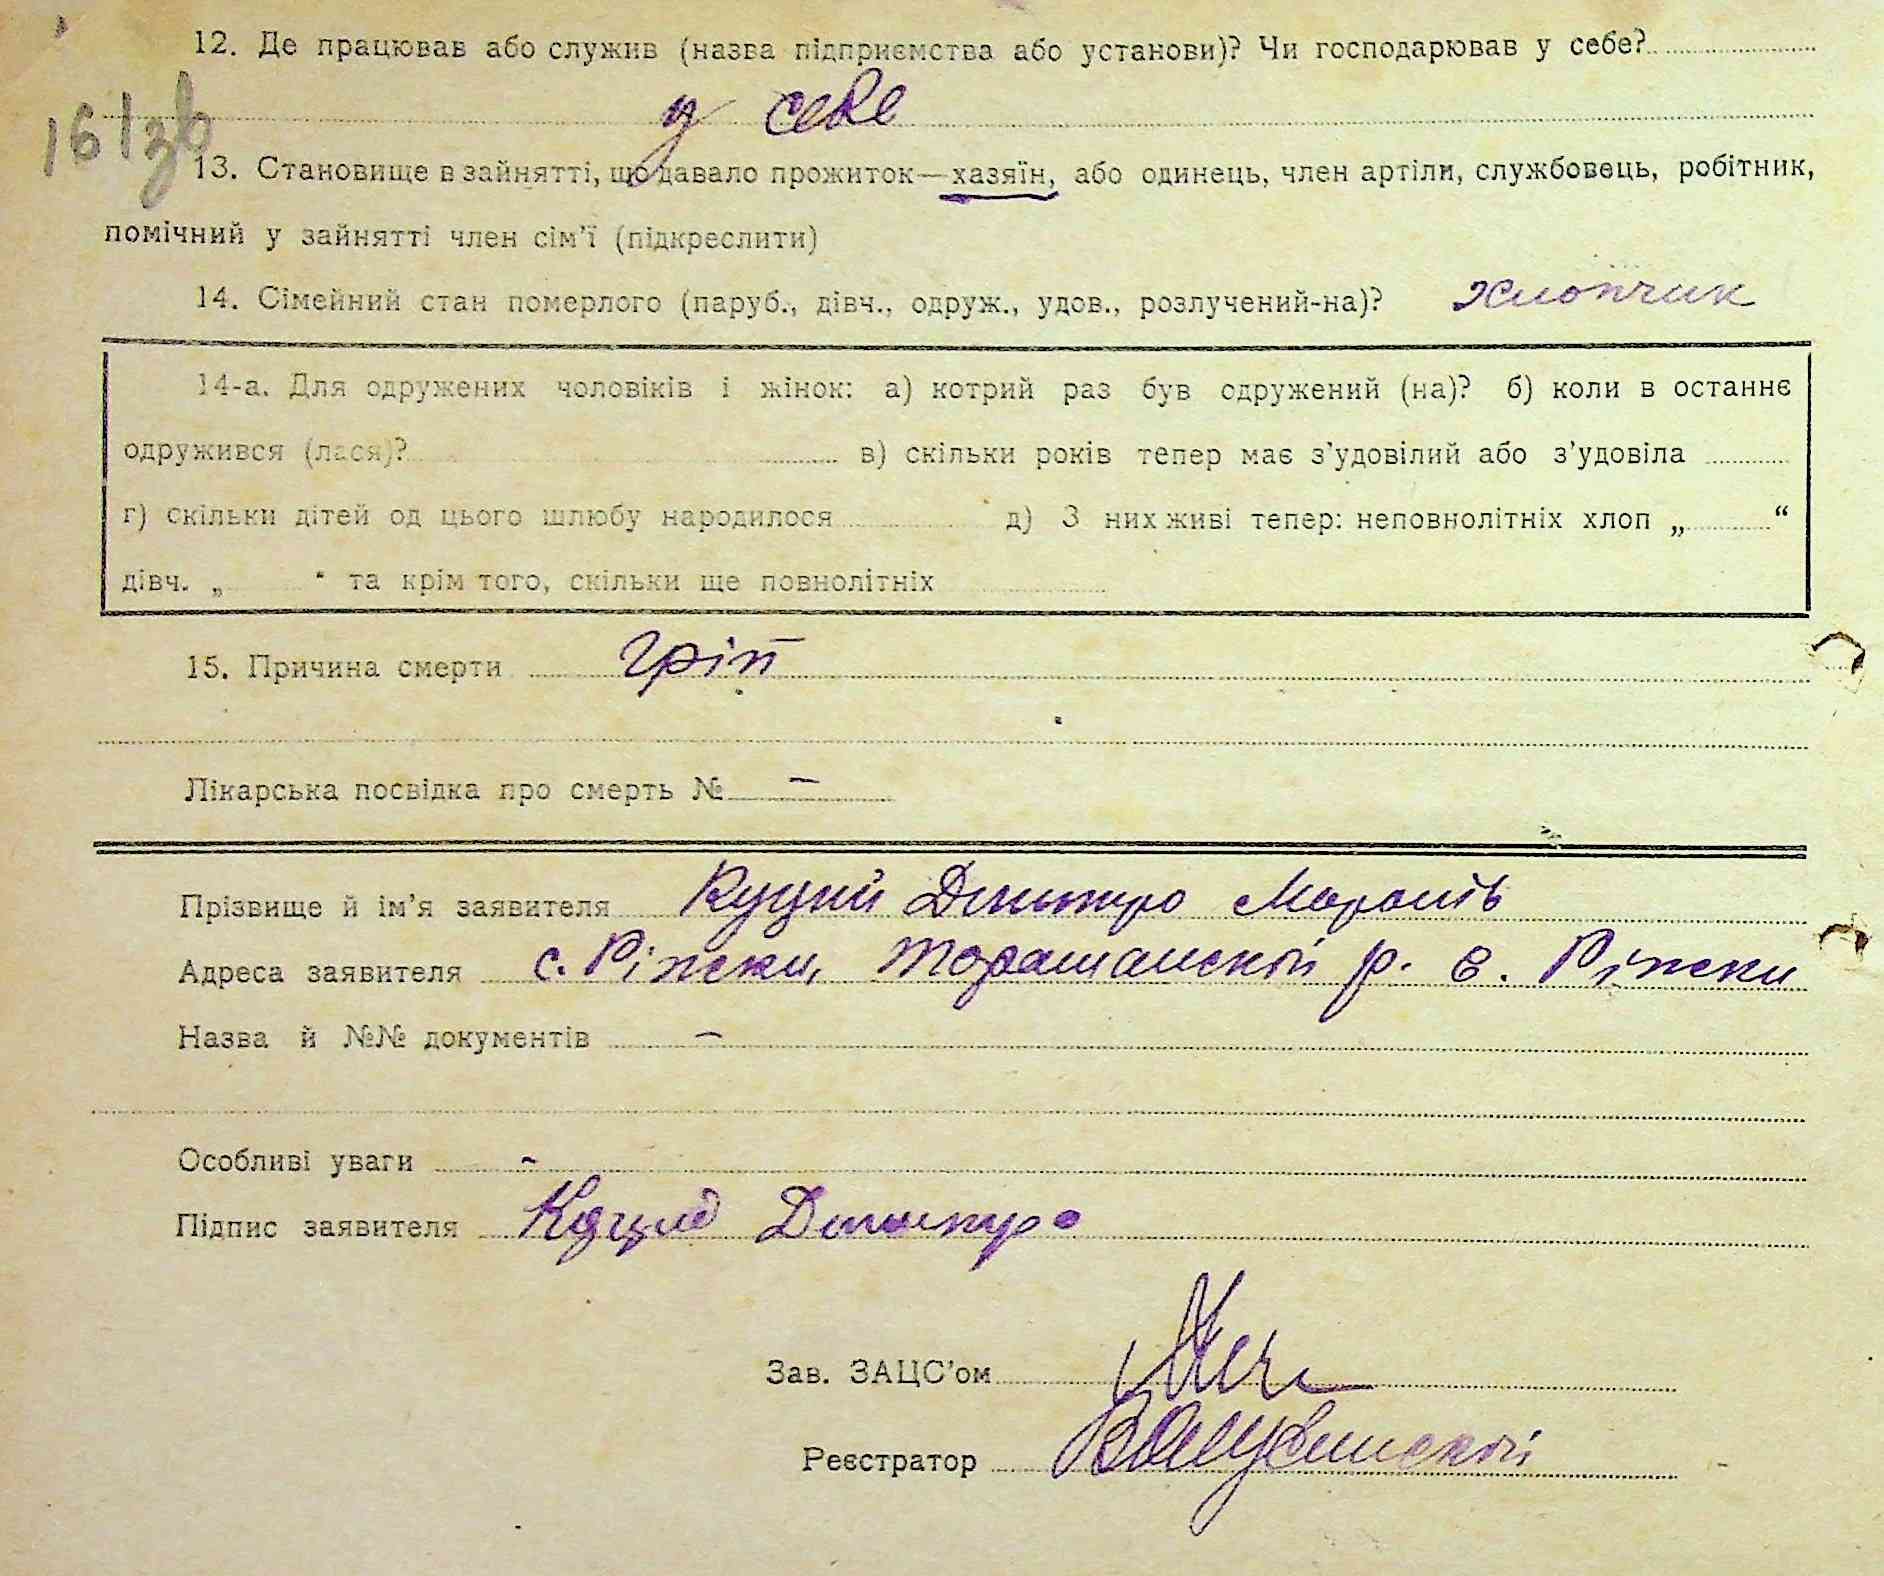 12. Де працював або служив (назва підприємства або установи)? Чи господарював у себе?
у себе
13. Становище в зайнятті, що давало прожиток—хазяїн, або одинець, член артіли, службовець, робітник,
помічний у зайнятті член сім'ї (підкреслити)
14. Сімейний стан померлого (паруб., дівч., одруж., удов., розлучений-на)? хлопчик
14-а. Для одружених чоловіків і жінок: а) котрий раз був одружений (на)? б) коли в останнє
одружився (лася)? в) скільки років тепер має з'удовілий або з'удовіла
г) скільки дітей од цього шлюбу народилося д) З них живі тепер: неповнолітніх хлоп „ “
дівч. „ “ та крім того, скільки ще повнолітніх
15. Причина смерти гріп
Лікарська посвідка про смерть № —
Прізвище й ім'я заявителя Куций Дмитро
Адреса заявителя с. Ріжки, Таращанской р. с. Ріжки
Назва й №№ документів —
Особливі уваги -
Підпис заявителя Куций Дмитро
Зав. ЗАЦС'ом
Реєстратор